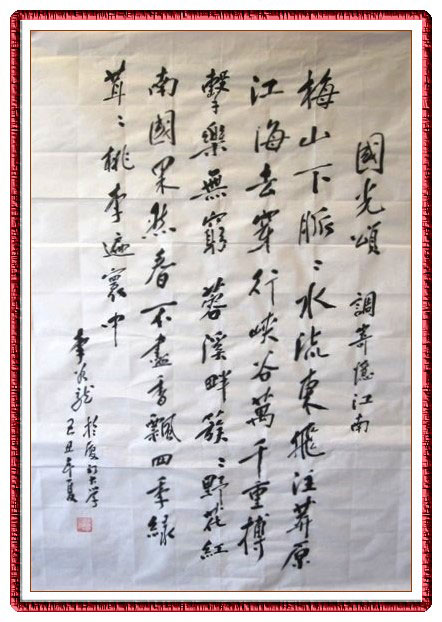 國光頌 調寄憶江南
梅山下脈〻水流東飛注莽原
江海去穿行峽谷萬千重搏
擊樂無窮 蓉溪畔簇〻野花紅
南國果然春不盡香飄四季綠
茸〻桃李遍寰中
於廈門大學
己丑年夏